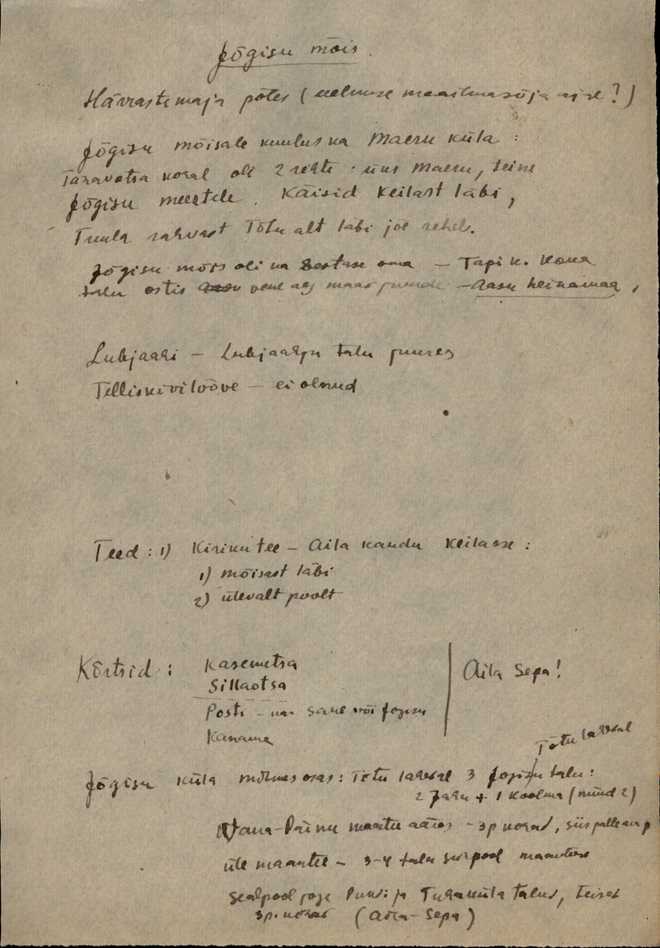 Jõgisu mõis.
Härrastemaja põles (eelmise maailmasõja ajal?)
Jõgisu mõisale kuulus ka Maeru küla:
oli 2 rehte: üks Maeru, teine
Jõgisu meestele. Käisid Keilast läbi,
Tuula rahvast Tõtu alt läbi jõe rehele.
Jõgisu mõis oli ka oma – Tapi k. Kona
talu ostis vene aeg maad juurde – Aasu heinamaa,
Lubjaahi – Lubjaahju talu juures
Telliskivilööve – ei olnud
Teed: 1) Kirikutee – Aila kaudu Keilasse:
1) mõisast läbi
2) ülevalt poolt
Kõrtsid: Kasemetsa
Sillaotsa
Posti –
Kanama
Aila Sepa!
Tõtu lahtral
Jõgisu küla mõlemas osas: Tõtu lahtral 3 Jõgisu talu:
2 Jahu + 1 Koolma (nüüd 2)
Vana-Pärnu maantee ääres – 3 p. korad, siis
üle maantee – 3-4 talu sealpool maanteed
Sealpool jõge ja Tuhaküla talud, teised
3 p. korad (Aila-Sepa)